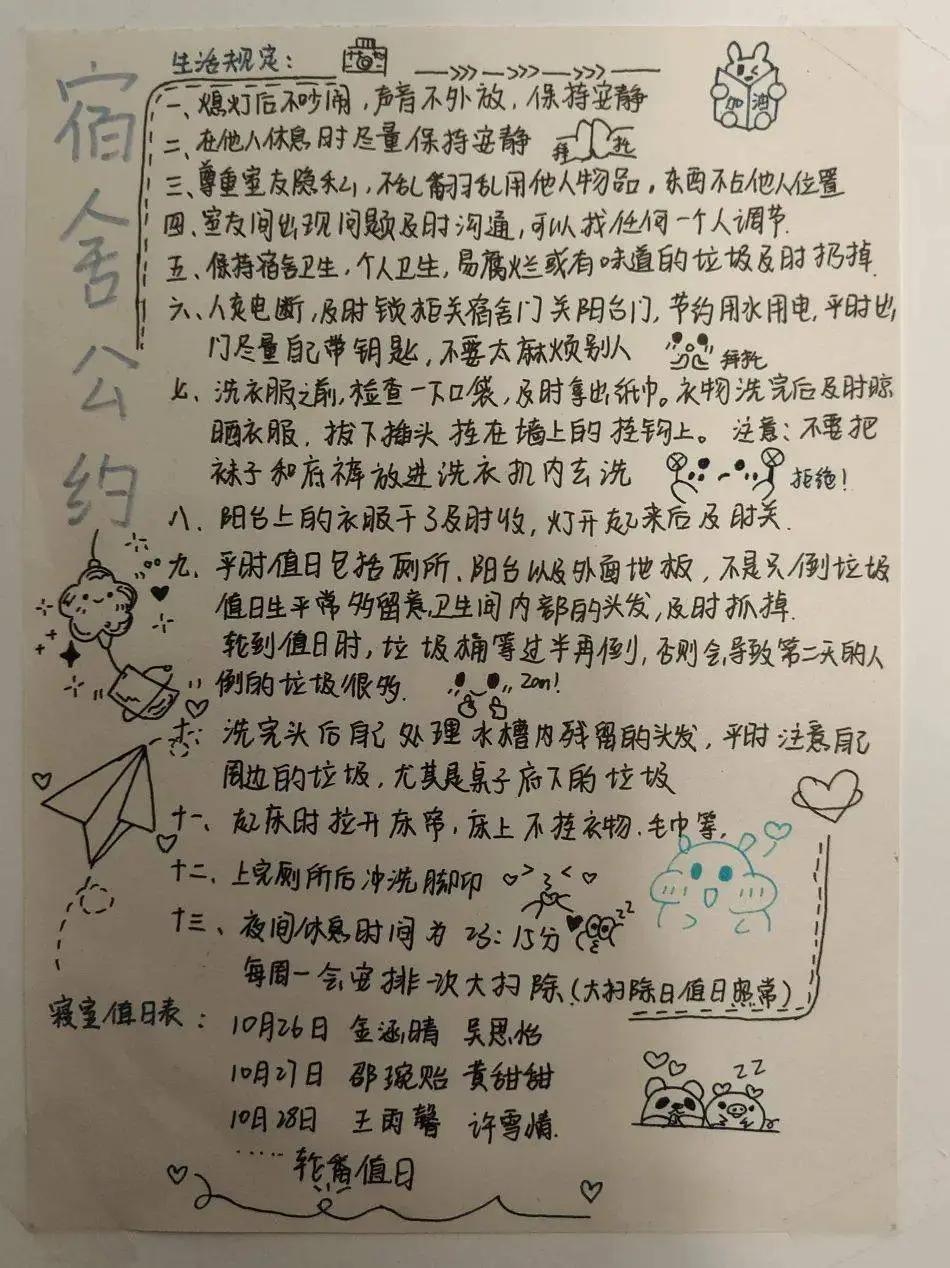 宿舍公约
生活规定：
加油
一、熄灯后不吵闹，声音不外放，保持安静
二、在他人休息时尽量保持安静 拜托
三、尊重室友隐私，不乱翻乱用他人物品，东西不占他人位置
四、室友间出现问题及时沟通，可以找任何一个人调节.
五、保持宿舍卫生，个人卫生，易腐烂或有味道的垃圾及时扔掉.
六、人走电断，及时锁柜关宿舍门关阳台门，节约用水用电，平时出
门尽量自己带钥匙，不要太麻烦别人 拜托
七、洗衣服之前，检查一下口袋，及时拿出纸巾。衣物洗完后及时晾
晒衣服，拔下插头 挂在墙上的挂钩上。 注意：不要把
袜子和底裤放进洗衣机内去洗 拒绝！
八、阳台上的衣服干了及时收，灯开起来后及时关.
九、平时值日包括厕所、阳台以及外面地板，不是只倒垃圾
值日生平常多留意卫生间内部的头发，及时抓掉.
轮到值日时，垃圾桶等过半再倒，否则会导致第二天的人
倒的垃圾很多.
十、洗完头后自己处理水槽内残留的头发，平时注意自己
周边的垃圾，尤其是桌子底下的垃圾
十一、起床时拉开床帘，床上不挂衣物、毛巾等.
十二、上完厕所后冲洗脚印
十三、夜间休息时间为 23：15分 zz
每周一会安排一次大扫除（大扫除日值日照常）
寝室值日表：
10月26日 金涵晴 吴思怡
10月27日 邵琬贻 黄甜甜
10月28日 王雨馨 许雪情.
ZZ
..... 轮番值日